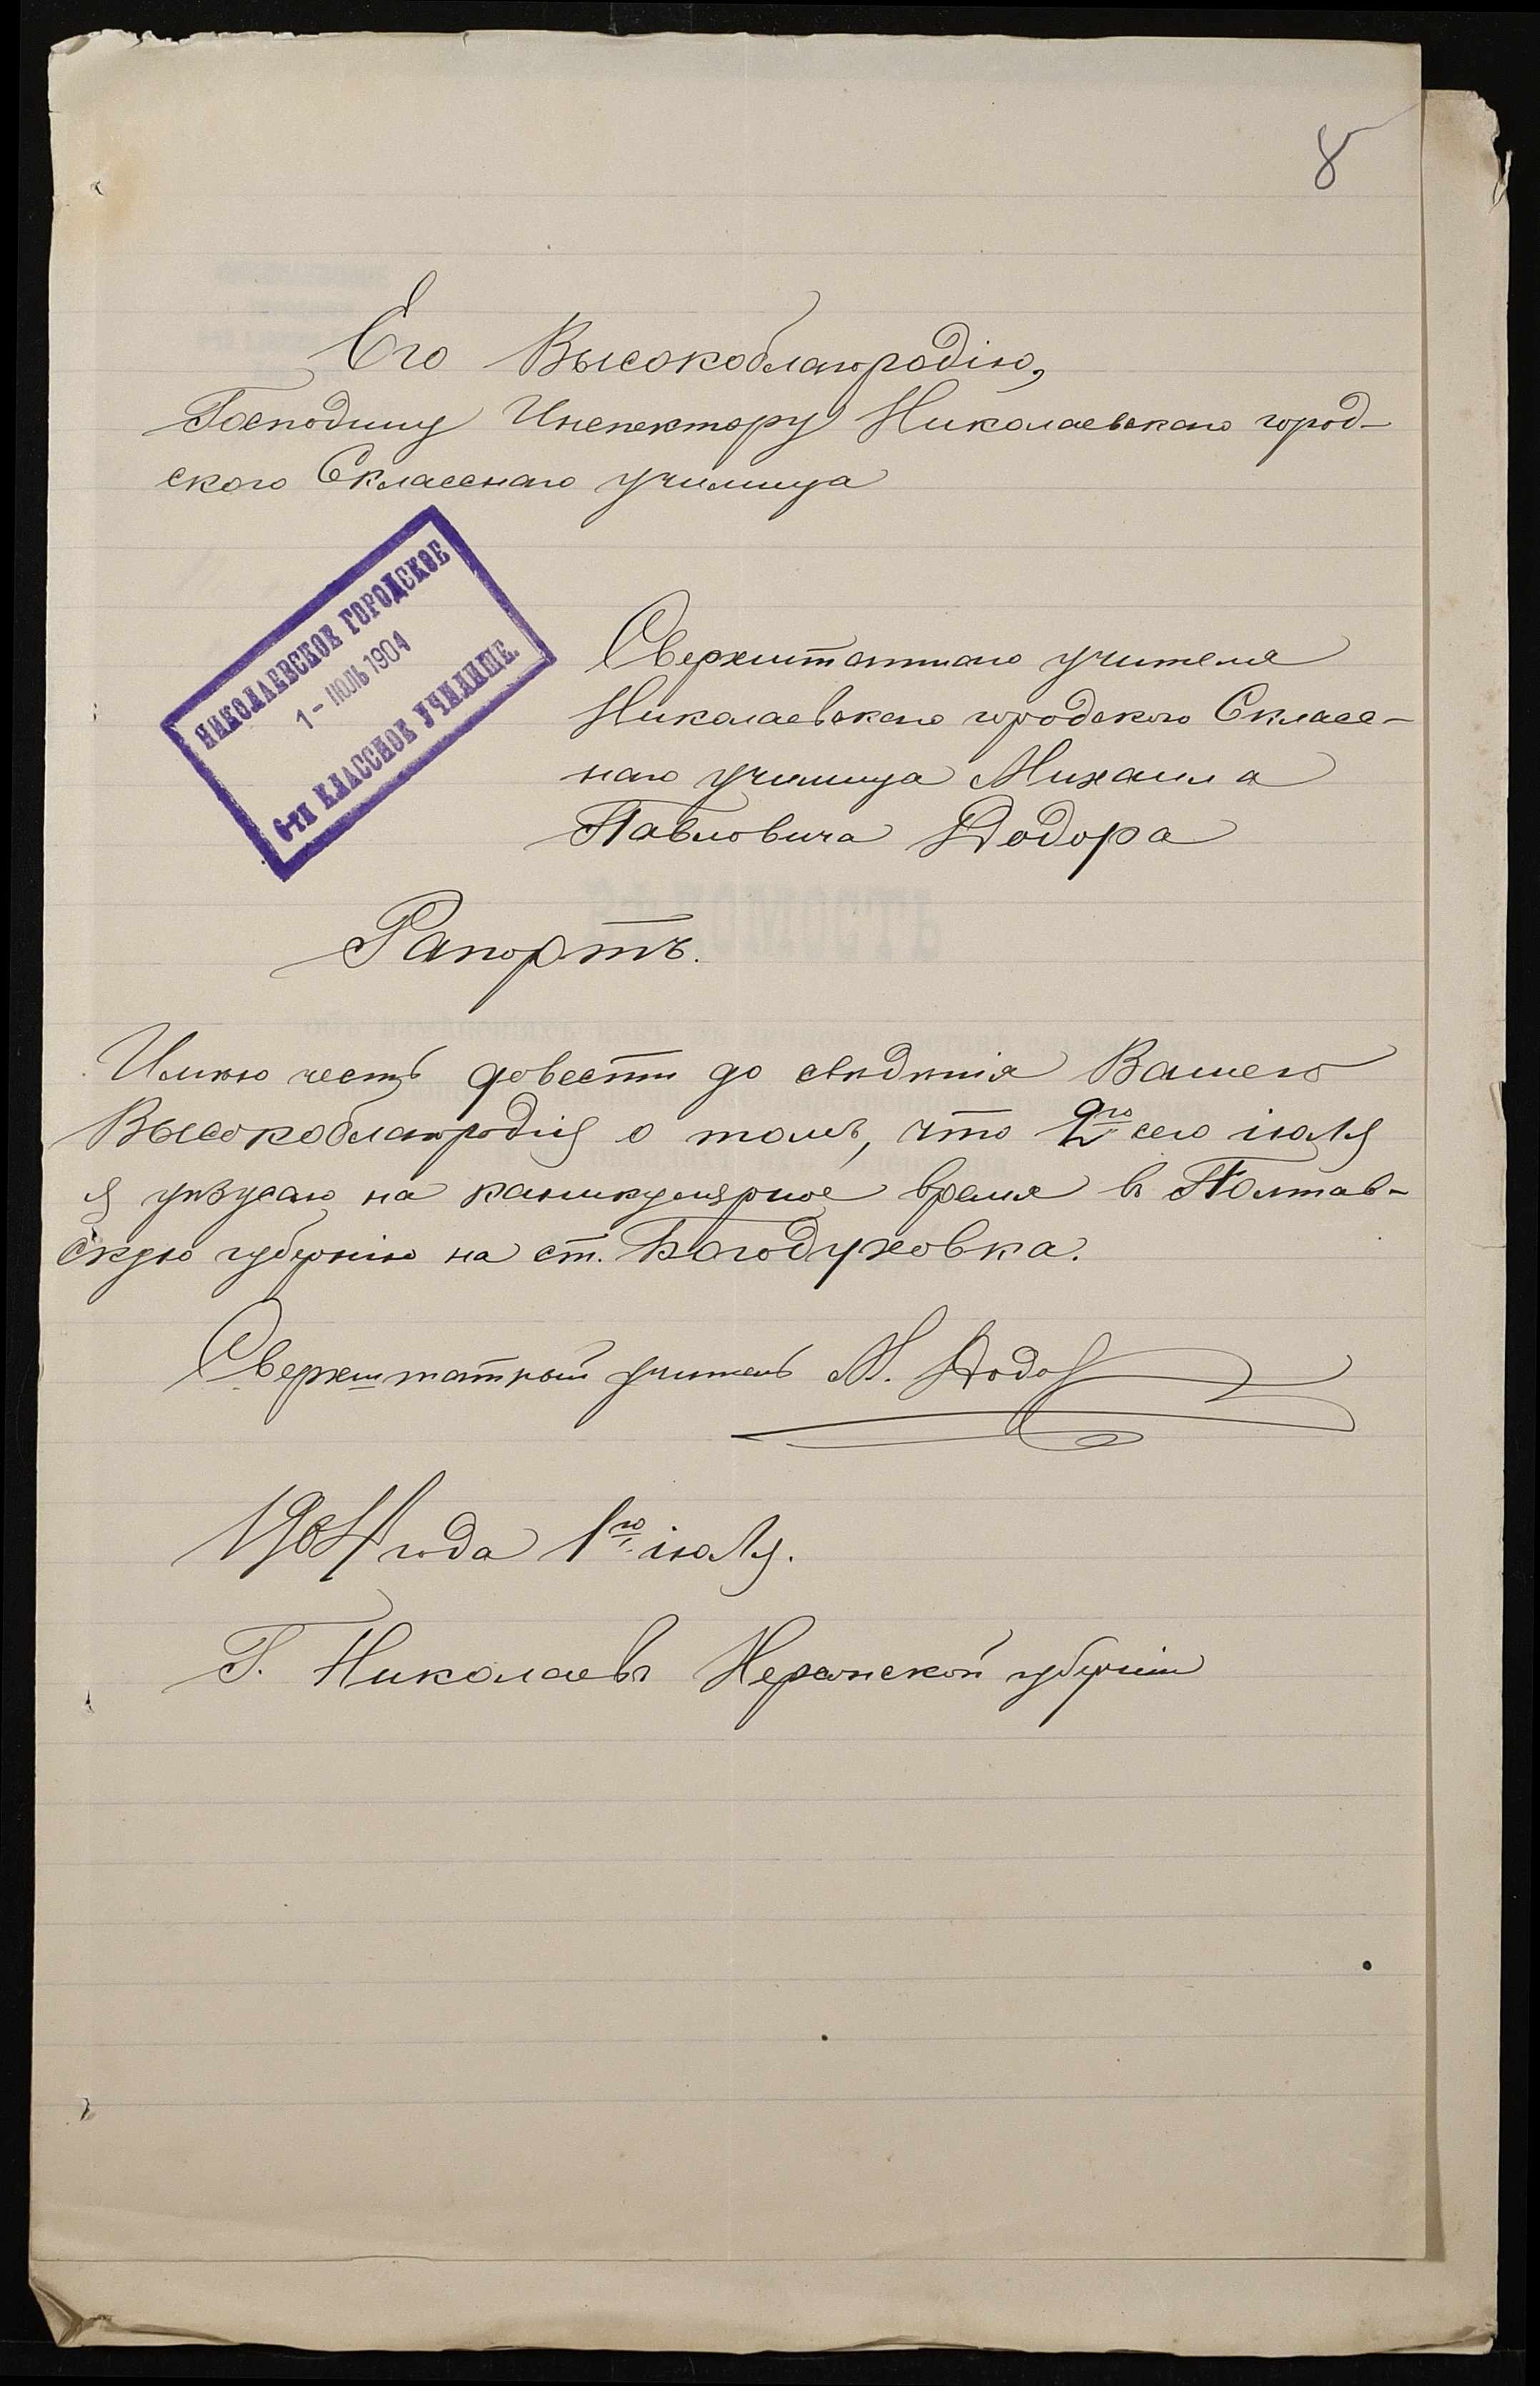 8
Его Высокоблагородію,
Господину Инспектору Николаевскаго город-
ского 6классного училища
НИКОЛАЕВСКОЕ ГОРОДСКОЕ
1 - ІЮЛЬ 1904
6-ти КЛАССНОЕ УЧИЛИЩЕ.
Сверхштатнаго учителя
Николаевскаго городского 6класс-
наго училища Михаила
Павловича Додора
Рапортъ.
Имѣю честь довести до свѣдѣнія Вашего
Высокоблагородія о томъ, что 2го сего іюля
я уѣзжаю на каникулярное время въ Полтав-
скую губернію на ст. Богодуховка.
Сверхштатный учитель М. Додор
1904 года 1го іюля.
Г. Николаевъ Херсонской губерніи